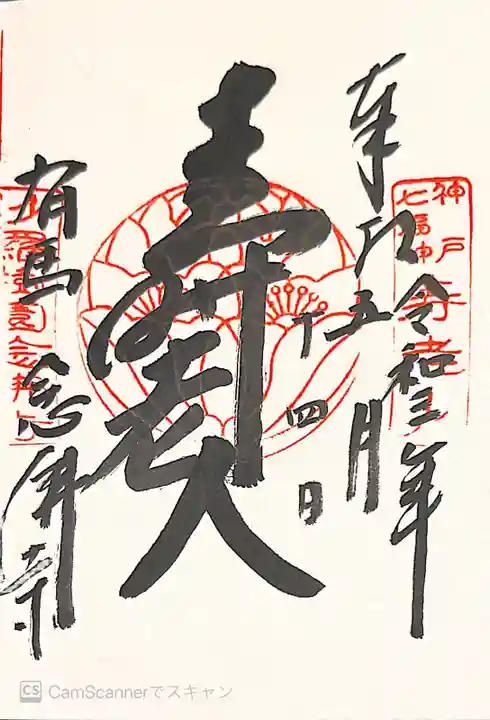 奉拝
令和三年
五月
十四日
神戸
七福神
寿老人
有馬
念佛寺
CS CamScannerでスキャン